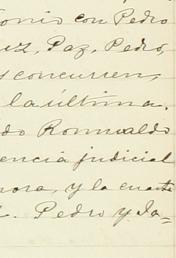 tonio con Pedro
uz, Paz, Pedro,
s concurren,
la última.
do Romualdo
encia judicial
nora, y la cuarta
Pedro y Ja-